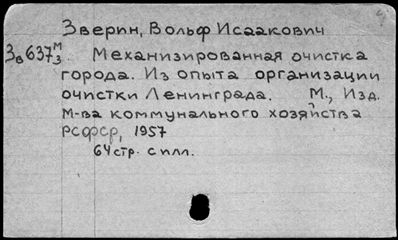 Зверин, Вольф Исаакович
Зв637 М/3 Механизированная очистка
города. Из опыта организации
очистки Ленинграда. М., Изд.
М-ва коммунального хозяйства
РСФСР, 1957
64 стр. с илл.